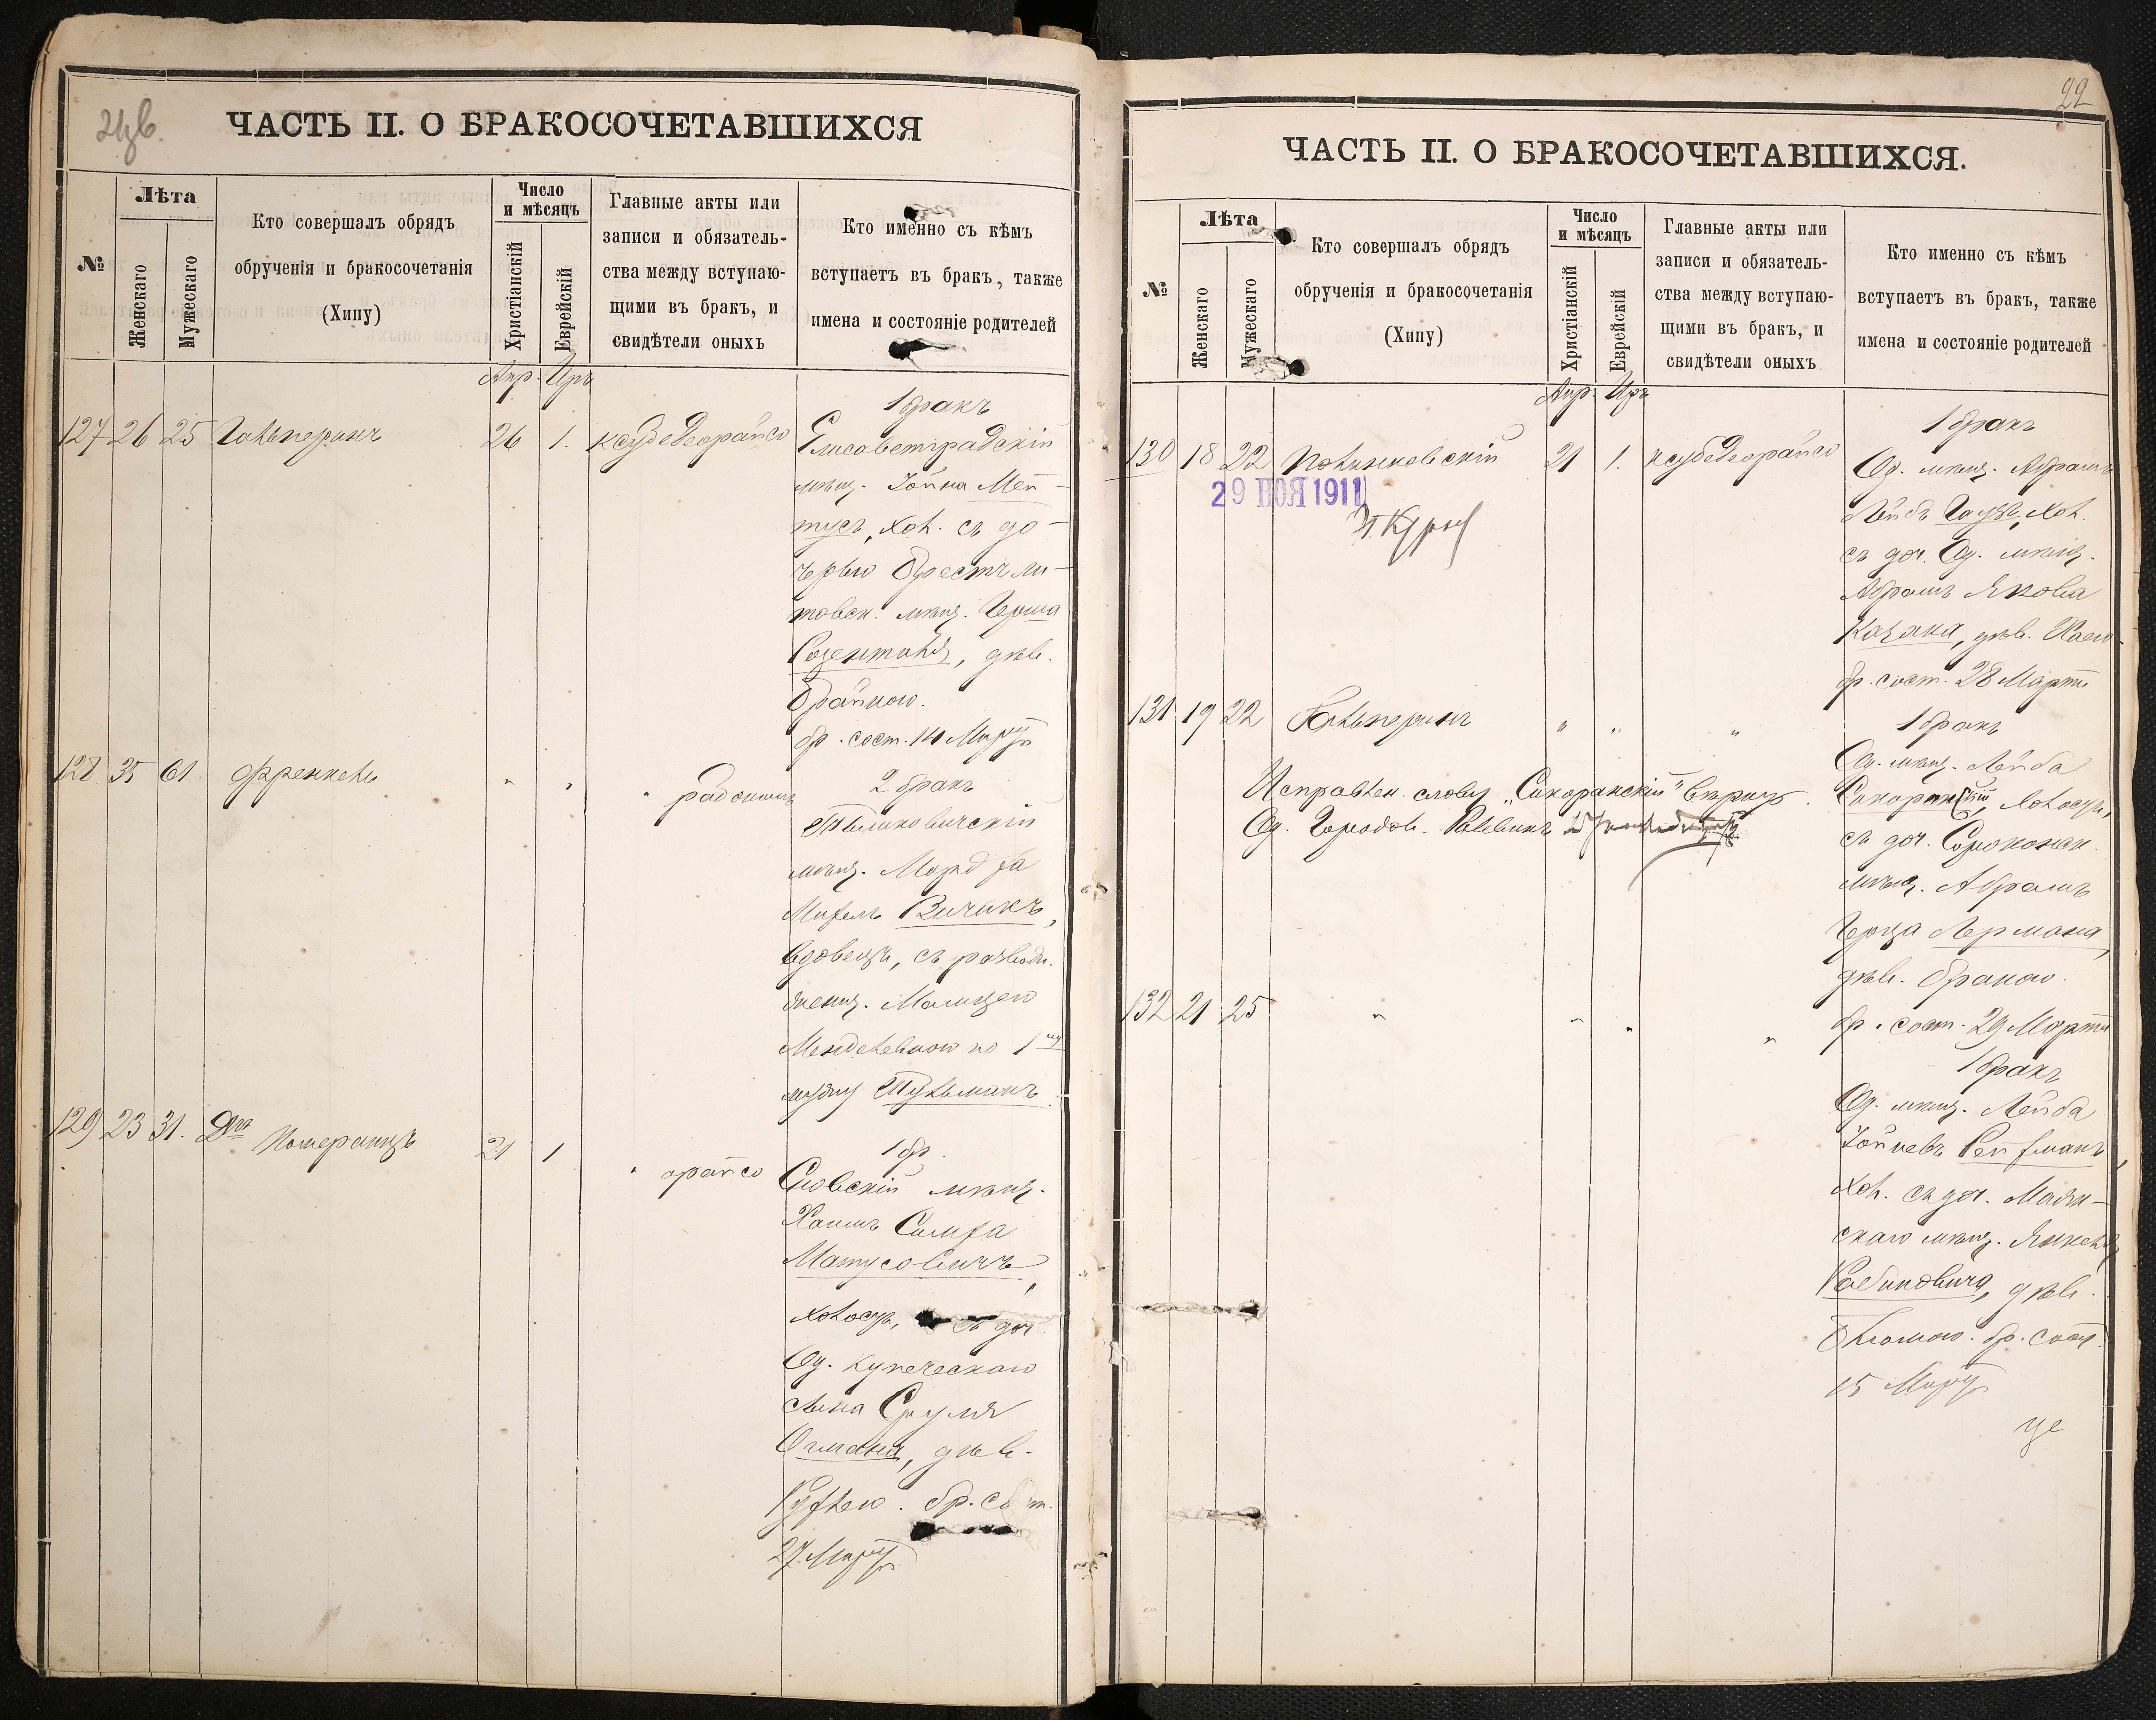 ЧАСТЬ II. О БРАКОСОЧЕТАВШИХСЯ
№
Лѣта
Женскаго
Мужескаго
Кто совершалъ обрядъ
обрученія и бракосочетанія
(Хипу)
Число
и мѣсяцъ
Христіанскій
Еврейскій
Главные акты или
записи и обязатель-
ства между вступаю-
щими въ бракъ, и
свидѣтели оныхъ
Кто именно съ кѣмъ
вступаетъ въ бракъ, также
имена и состояніе родителей
Апр. Иръ
127 26 25 Гальперинъ 26 1.
1 бракъ
Елисаветградскій
мѣщ. Іойна Мей-
тусъ, хол. съ до-
черью Брестъ ли-
товск. мѣщ. Герша
Розенталя, дѣв.
Брайною.
бр. сост. 14 Марта
128 35 61 Френкель " " "
2 бракъ
мѣщ. Мордха
Вичикъ,
вдовецъ, съ развод.
женщ. Малицею
Менделевною по 1му
мужу Шульманъ.
129 23 31. Померанцъ 21 1 "
1 бр.
мѣщ.
Хаимъ Симха
Матусовичъ,
холость, съ доч.
Од. купеческаго
сына Сруля
дѣв.
Рухлею. бр. сост.
27 Марта
22
ЧАСТЬ II. О БРАКОСОЧЕТАВШИХСЯ.
№
Лѣта
Женскаго
Мужескаго
Кто совершалъ обрядъ
обрученія и бракосочетанія
(Хипу)
Число
и мѣсяцъ
Христіанскій
Еврейскій
Главные акты или
записи и обязатель-
ства между вступаю-
щими въ бракъ, и
свидѣтели оныхъ
Кто именно съ кѣмъ
вступаетъ въ бракъ, также
имена и состояніе родителей
Апр. Иръ
130 18 22 Полинковскій 21 1.
29 НОЯ 1911
1 бракъ
Од. мѣщ. Абрамъ
Лейбъ Гаузъ, хол.
съ доч. Од. мѣщ.
Абрамъ Якова
Казака, дѣв. Хаею
бр. сост. 28 Марта
131 19 22 Гальперинъ " " "
Исправлен. слову „Сикорскій" вѣрно.
Од. Городов. Раввинъ
1 бракъ
Од. мѣщ. Лейба
холость,
съ доч. Сорокскаго
мѣщ. Абрамъ
Герца Лермана,
дѣв. Бранею.
бр. сост. 29 Марта
132 21 25 " " " "
1 бракъ
Од. мѣщ. Лейба
Іойневъ Рейфманъ,
хол. съ доч. Маяк-
скаго мѣщ. Янкеля
Рабиновича, дѣв.
Блюмою. бр. сост.
15 Марта